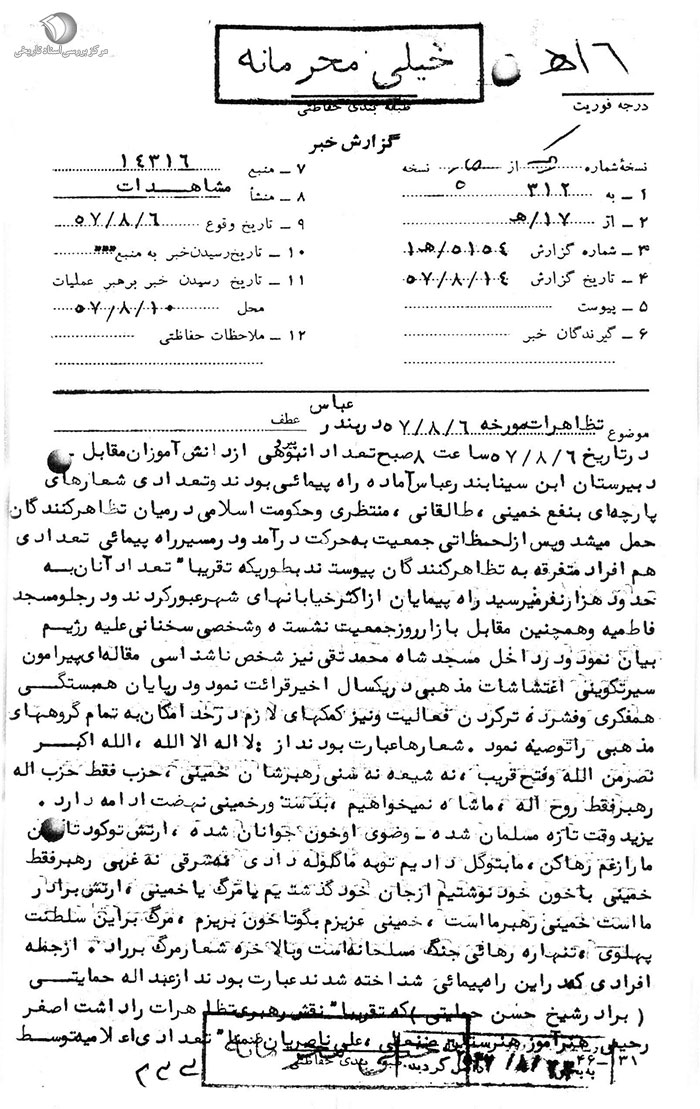 مرکز بررسی اسناد تاریخی
خیلی محرمانه
طبقه بندی حفاظتی
۱۶/ﻫ
درجه فوریت
گزارش خبر
نسخهٔ شماره از نسخه
۱ – به ۳۱۲
۲ – از ۱۷/ﻫ
۳ – شماره گزارش ۵۱۵۴/ﻫ۱
۴ – تاریخ گزارش ۵۷/۸/۱۴
۵ – پیوست
۶ – گیرندگان خبر
۷ – منبع ۱۴۳۱۶
۸ – منشأ مشاهدات
۹ – تاریخ وقوع ۵۷/۸/۶
۱۰ – تاریخ رسیدن خبر به منبع
۱۱ – تاریخ رسیدن خبر برهبر عملیات
محل ۵۷/۸/۱۰
۱۲ – ملاحظات حفاظتی
موضوع تظاهرات مورخه ۵۷/۸/۶ در بندر عباس
عطف
در تاریخ ۵۷/۸/۶ ساعت ۸ صبح تعداد انبوهی از دانش آموزان مقابل
دبیرستان ابن سینا بندرعباس آماده راه پیمائی بودند و تعدادی شعارهای
پارچه‌ای بنفع خمینی ، طالقانی ، منتظری و حکومت اسلامی در میان تظاهرکنندگان
حمل میشد و پس از لحظاتی جمعیت به حرکت درآمد و در مسیر راه پیمائی تعدادی
هم افراد متفرقه به تظاهرکنندگان پیوستند بطوریکه تقریبا" تعداد آنان به
حدود هزار نفر میرسید راه پیمایان از اکثر خیابانهای شهر عبور کردند و در جلو مسجد
فاطمیه و همچنین مقابل بازار روز جمعیت نشسته و شخصی سخنانی علیه رژیم
بیان نمود و در داخل مسجد شاه محمد تقی نیز شخص ناشناسی مقاله‌ای پیرامون
سیر تکوینی اغتشاشات مذهبی در یکسال اخیر قرائت نمود و در پایان همبستگی
همفکری و فشرده ترکردن فعالیت و نیز کمکهای لازم در حد امکان به تمام گروههای
مذهبی را توصیه نمود . شعارها عبارت بودند از : لا اله الا الله ، الله اکبر
نصر من الله و فتح قریب ، نه شیعه نه سنی رهبرشان خمینی ، حزب فقط حزب اله
رهبر فقط روح اله ، ما شاه نمیخواهیم ، بدستور خمینی نهضت ادامه دارد .
یزید وقت تازه مسلمان شده – وضوی او خون جوانان شده ، ارتش تو کودتا کن
ما را زغم رها کن ، ما بتو گل دادیم تو به ما گلوله دادی نه شرقی نه غربی رهبر فقط
خمینی با خون خود نوشتیم از جان خود گذشتیم یا مرگ یا خمینی ، ارتش برادر
ما است خمینی رهبر ما است ، خمینی عزیزم بگو تا خون بریزم ، مرگ بر این سلطنت
پهلوی ، تنها ره رهائی جنگ مسلحانه است و بالاخره شعار مرگ بر راد . ازجمله
افرادی که در این راه پیمائی شناخته شدند عبارت بودند از عبداله حمایتی
( برادر شیخ حسن حمایتی ) که تقریبا" نقش رهبری تظاهرات را داشت اصغر
رحیمی هنرآموز هنرستان صنعتی ، علی ناصریان ضمنا" تعدادی اعلامیه توسط